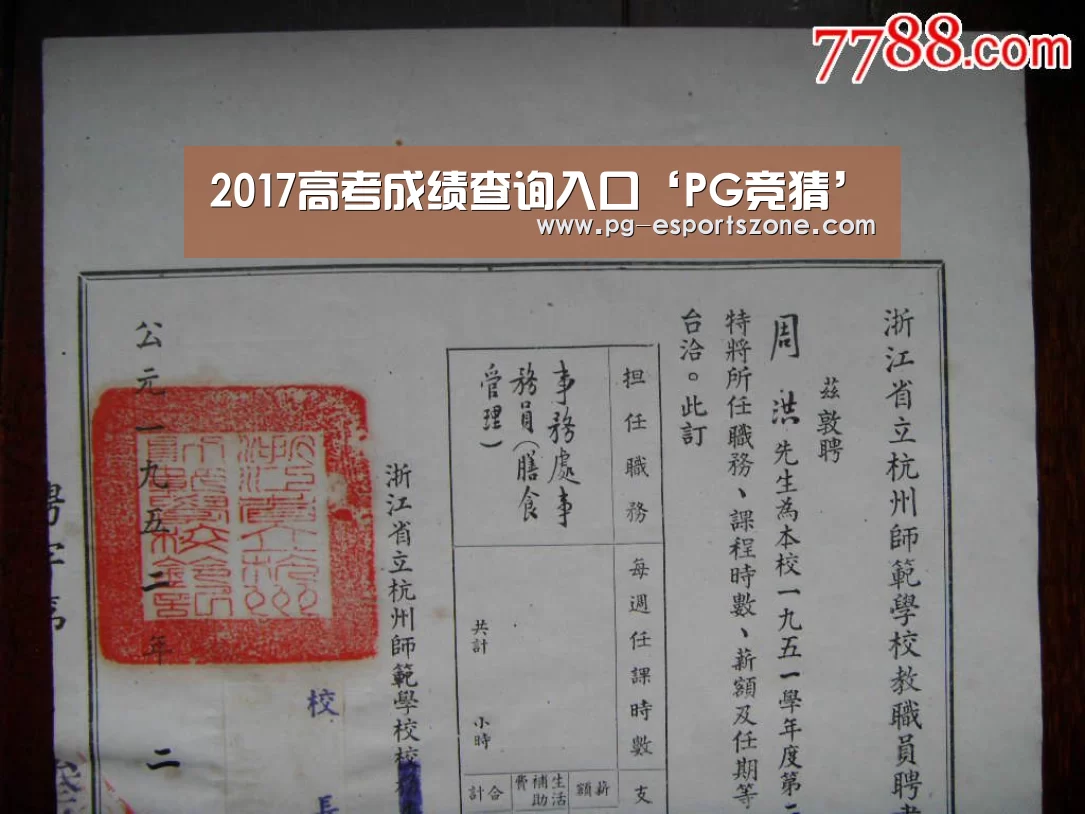 7788.com
2017高考成绩查询入口‘PG竞猜’
www.pg-esportszone.com
浙江省立杭州師範學校教職員聘書
茲敦聘
周洪先生為本校一九五一學年度第二
特將所任職務、課程時數、薪額及任期等
台洽。此訂
担任職務
每週任課時數
支
事務處事
務員（膳食
管理）
共計 小時
薪額
生活補助費
合計
浙江省立杭州師範學校校
校長
公元一九五二年 二
聘字第